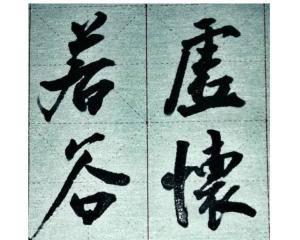 虛懷
若谷